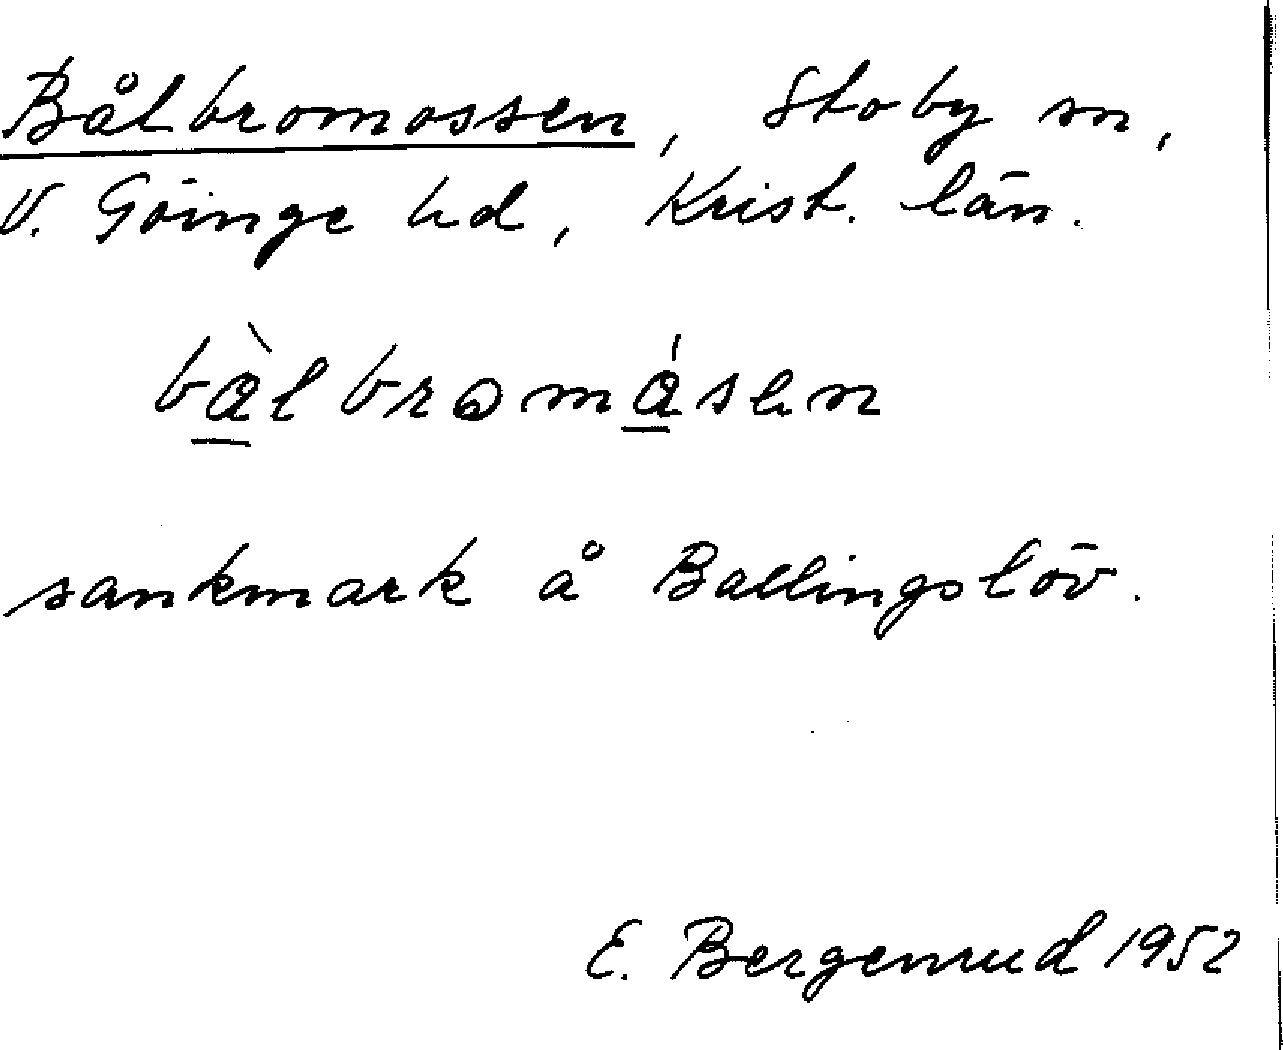 Bålbromossen, Stoby sn,
V. Göinge hd, Krist. län.
bàlbromásen
sankmark å Ballingslöv.
E. Bergenrud 1952